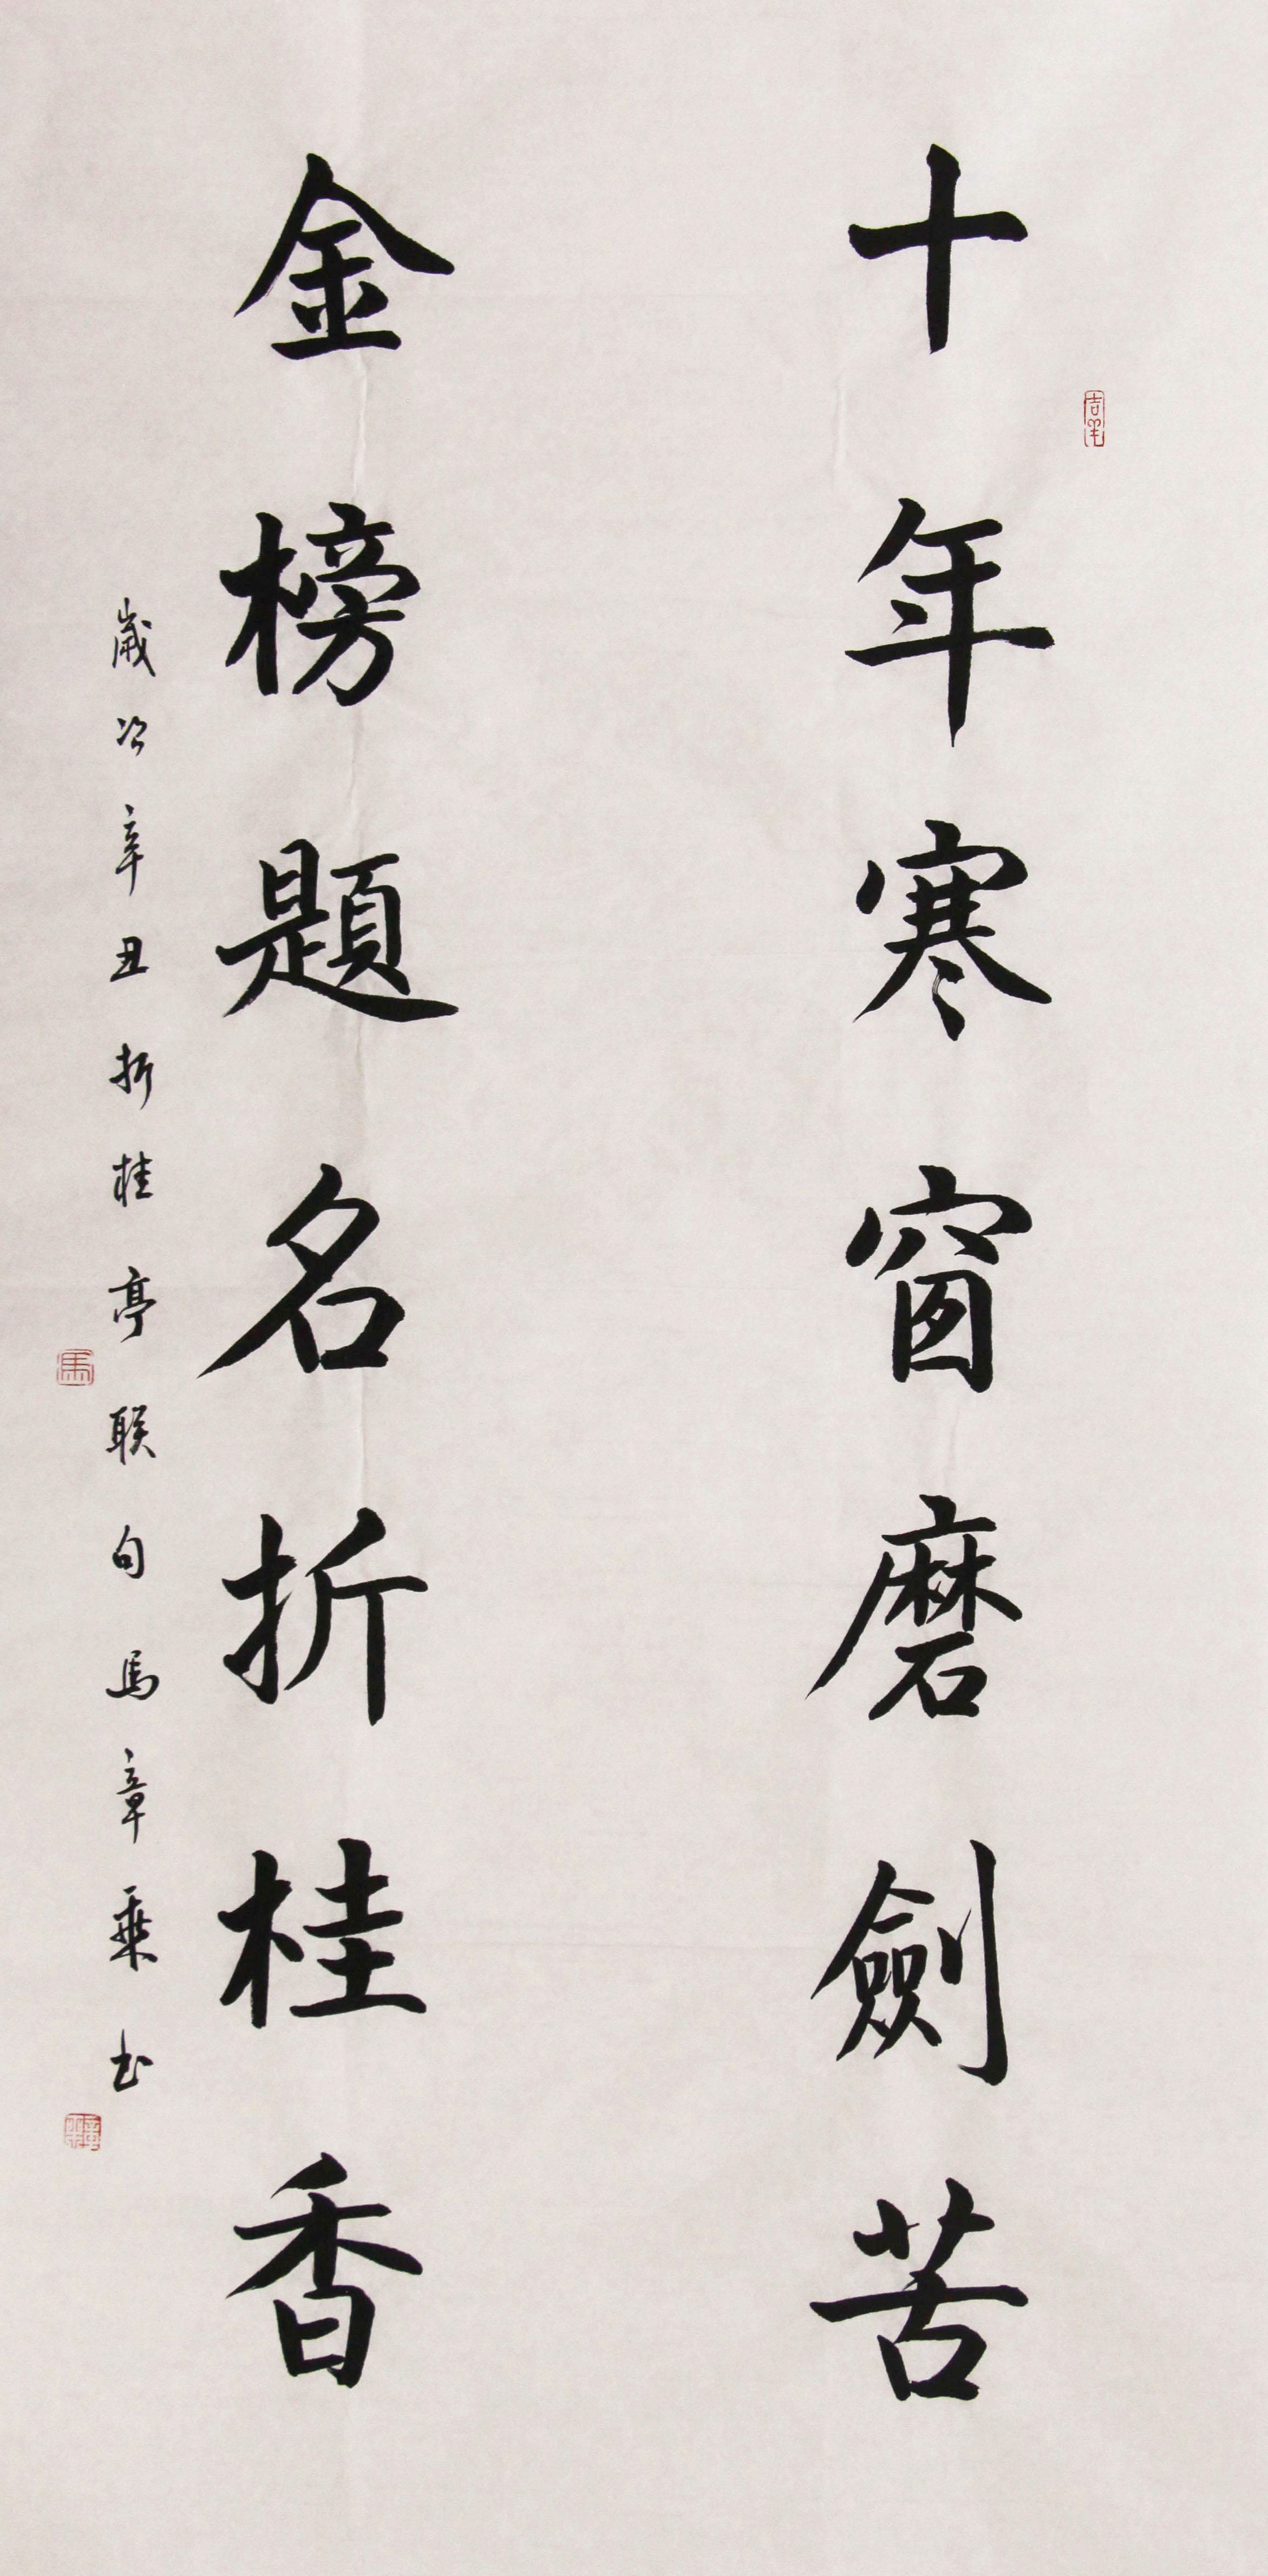 十年寒窗磨劍苦
金榜題名折桂香
歲次辛丑折桂亭联句馬章乘书
吉羊
馬